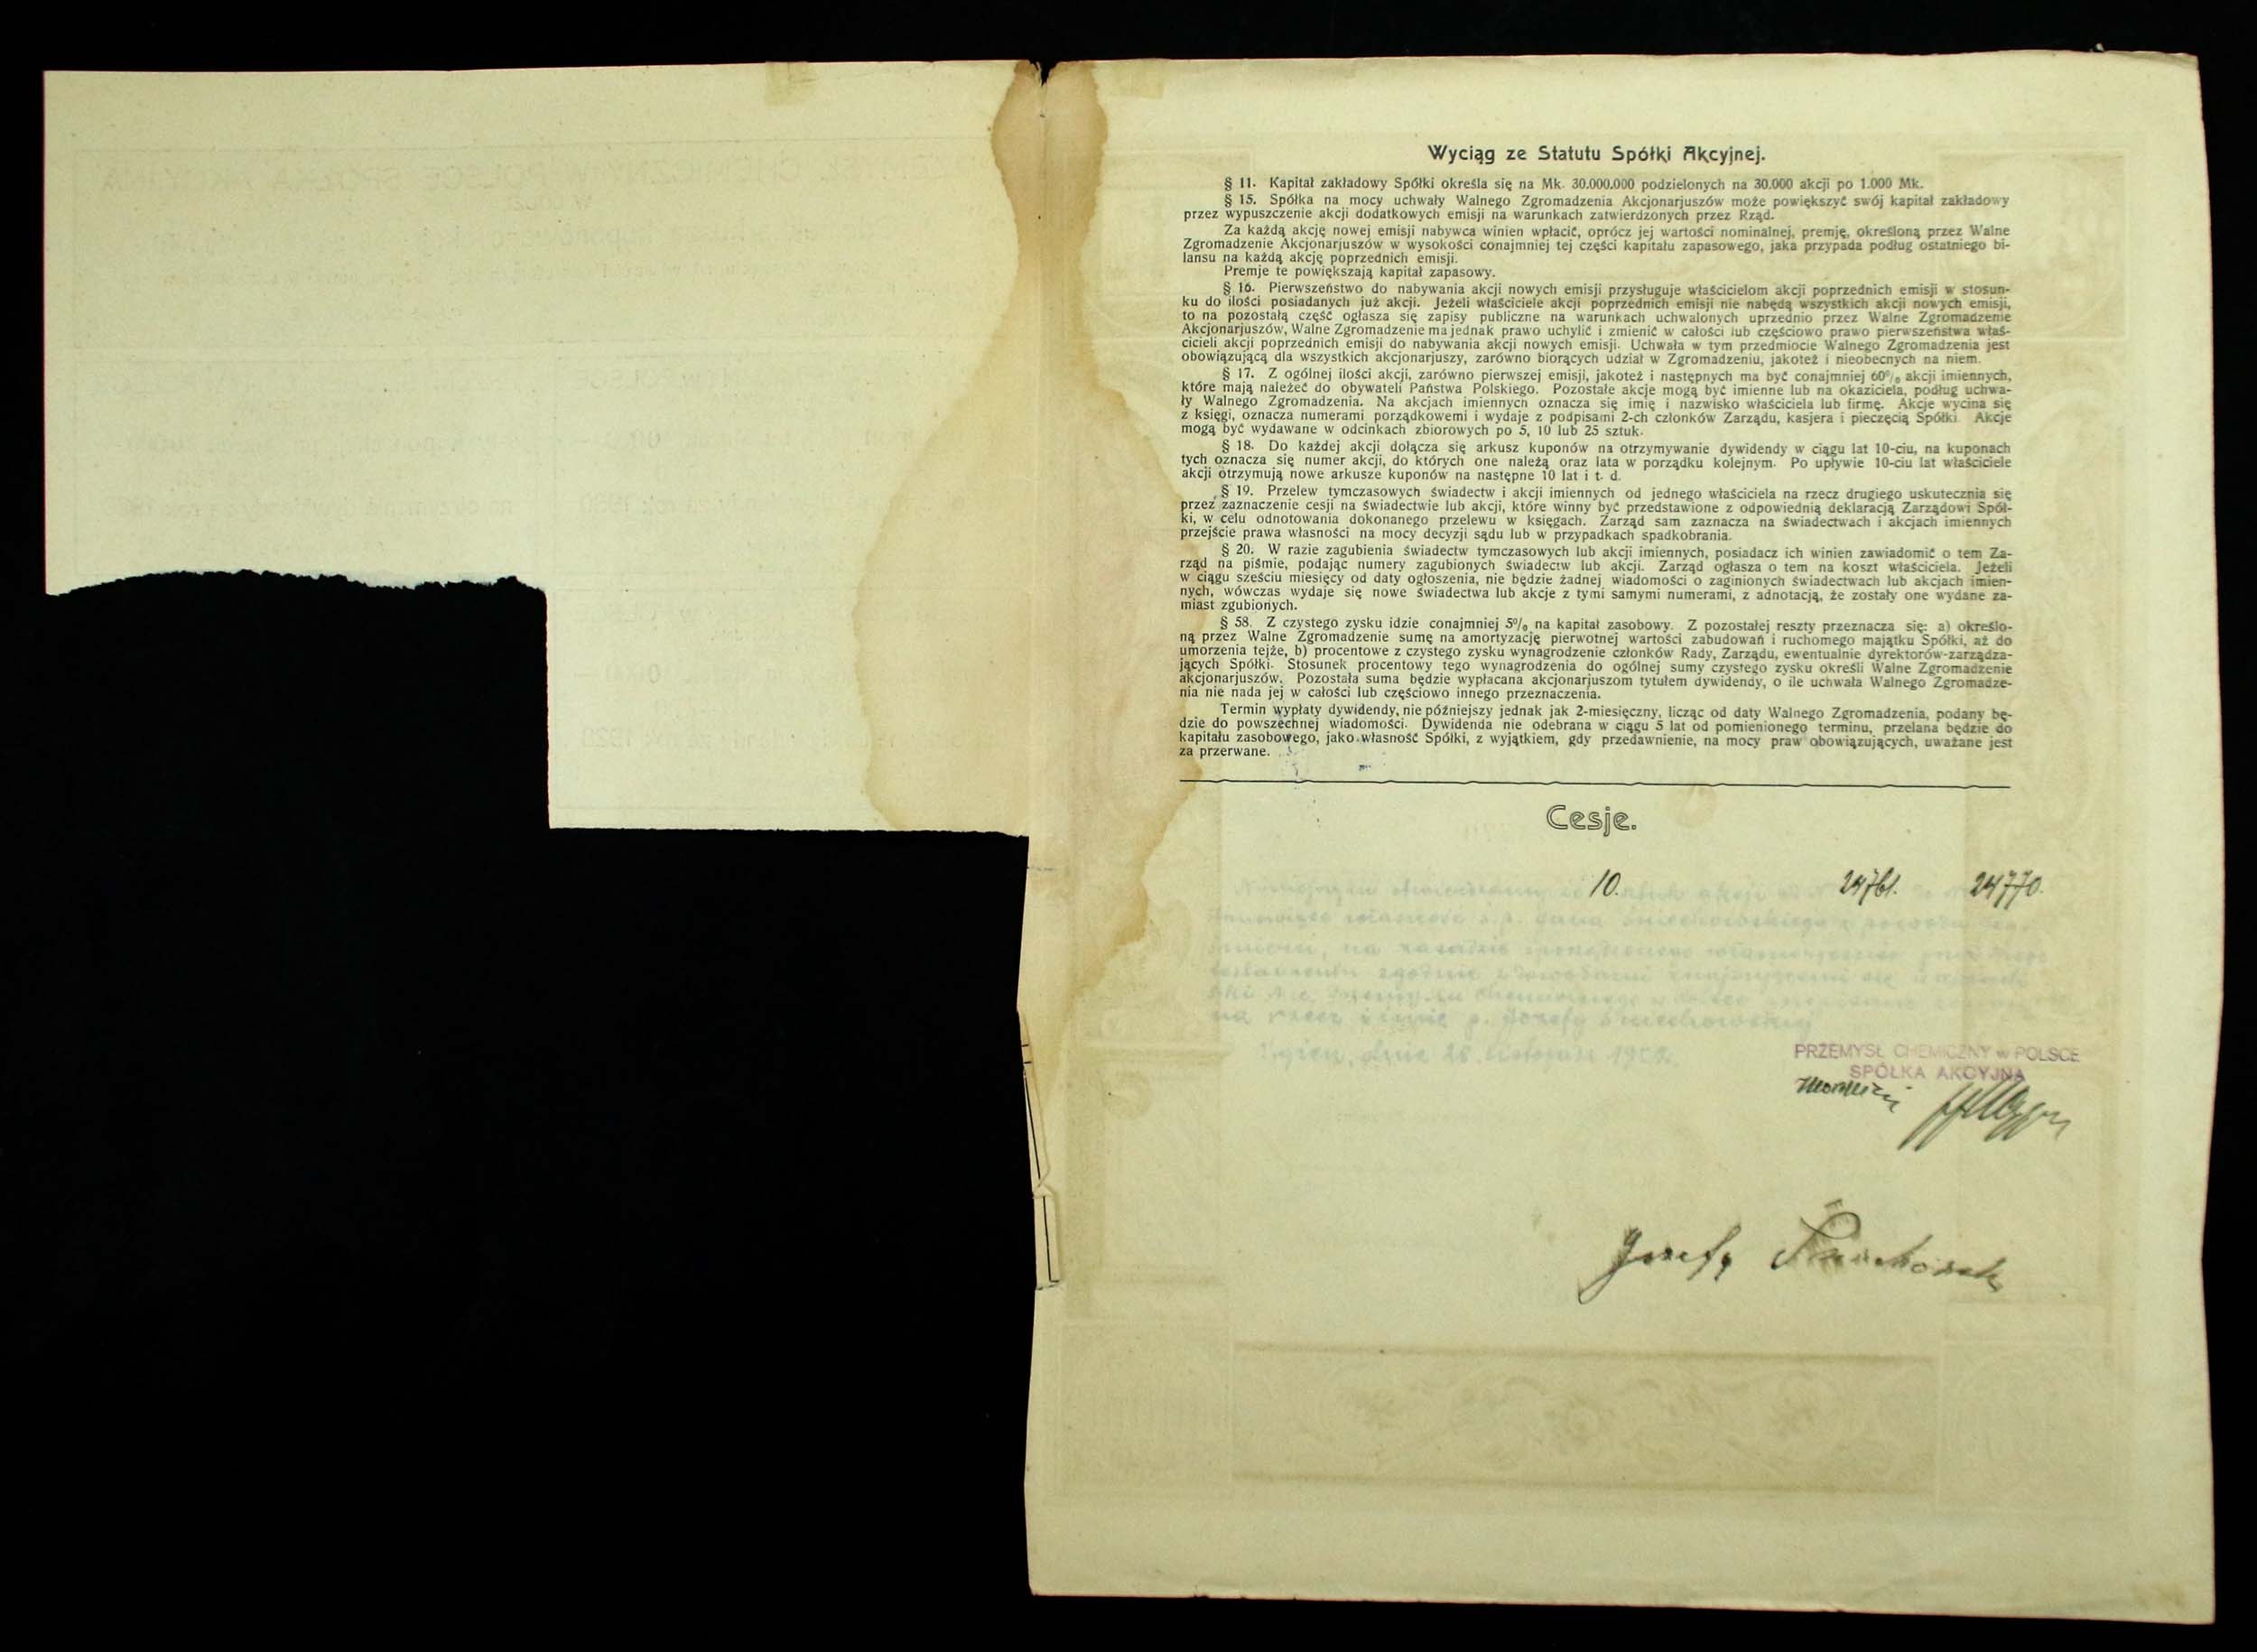 Wyciąg ze Statutu Spółki Akcyjnej.
§ 11. Kapitał zakładowy Spółki określa się na Mk. 30.000.000 podzielonych na 30.000 akcji po 1.000 Mk.
§ 15. Spółka na mocy uchwały Walnego Zgromadzenia Akcjonarjuszów może powiększyć swój kapitał zakładowy
przez wypuszczenie akcji dodatkowych emisji na warunkach zatwierdzonych przez Rząd.
Za każdą akcję nowej emisji nabywca winien wpłacić, oprócz jej wartości nominalnej, premję, określoną przez Walne
Zgromadzenie Akcjonarjuszów w wysokości conajmniej tej części kapitału zapasowego, jaka przypada podług ostatniego bi-
lansu na każdą akcję poprzednich emisji.
Premje te powiększają kapitał zapasowy.
§ 16. Pierwszeństwo do nabywania akcji nowych emisji przysługuje właścicielom akcji poprzednich emisji w stosun-
ku do ilości posiadanych już akcji. Jeżeli właściciele akcji poprzednich emisji nie nabędą wszystkich akcji nowych emisji,
to na pozostałą część ogłasza się zapisy publiczne na warunkach uchwalonych uprzednio przez Walne Zgromadzenie
Akcjonarjuszów, Walne Zgromadzenie ma jednak prawo uchylić i zmienić w całości lub częściowo prawo pierwszeństwa właś-
cicieli akcji poprzednich emisji do nabywania akcji nowych emisji. Uchwała w tym przedmiocie Walnego Zgromadzenia jest
obowiązującą dla wszystkich akcjonarjuszy, zarówno biorących udział w Zgromadzeniu, jakoteż i nieobecnych na niem.
§ 17. Z ogólnej ilości akcji, zarówno pierwszej emisji, jakoteż i następnych ma być conajmniej 60% akcji imiennych,
które mają należeć do obywateli Państwa Polskiego. Pozostałe akcje mogą być imienne lub na okaziciela, podług uchwa-
ły Walnego Zgromadzenia. Na akcjach imiennych oznacza się imię i nazwisko właściciela lub firmę. Akcje wycina się
z księgi, oznacza numerami porządkowemi i wydaje z podpisami 2-ch członków Zarządu, kasjera i pieczęcią Spółki. Akcje
mogą być wydawane w odcinkach zbiorowych po 5, 10 lub 25 sztuk.
§ 18. Do każdej akcji dołącza się arkusz kuponów na otrzymywanie dywidendy w ciągu lat 10-ciu, na kuponach
tych oznacza się numer akcji, do których one należą oraz lata w porządku kolejnym. Po upływie 10-ciu lat właściciele
akcji otrzymują nowe arkusze kuponów na następne 10 lat i t. d.
§ 19. Przelew tymczasowych świadectw i akcji imiennych od jednego właściciela na rzecz drugiego uskutecznia się
przez zaznaczenie cesji na świadectwie lub akcji, które winny być przedstawione z odpowiednią deklaracją Zarządowi Spół-
ki, w celu odnotowania dokonanego przelewu w księgach. Zarząd sam zaznacza na świadectwach i akcjach imiennych
przejście prawa własności na mocy decyzji sądu lub w przypadkach spadkobrania.
§ 20. W razie zagubienia świadectw tymczasowych lub akcji imiennych, posiadacz ich winien zawiadomić o tem Za-
rząd na piśmie, podając numery zagubionych świadectw lub akcji. Zarząd ogłasza o tem na koszt właściciela. Jeżeli
w ciągu sześciu miesięcy od daty ogłoszenia, nie będzie żadnej wiadomości o zaginionych świadectwach lub akcjach imien-
nych, wówczas wydaje się nowe świadectwa lub akcje z tymi samymi numerami, z adnotacją, że zostały one wydane za-
miast zgubionych.
§ 58. Z czystego zysku idzie conajmniej 5% na kapitał zasobowy. Z pozostałej reszty przeznacza się: a) określo-
ną przez Walne Zgromadzenie sumę na amortyzację pierwotnej wartości zabudowań i ruchomego majątku Spółki, aż do
umorzenia tejże, b) procentowe z czystego zysku wynagrodzenie członków Rady, Zarządu, ewentualnie dyrektorów-zarządza-
jących Spółki. Stosunek procentowy tego wynagrodzenia do ogólnej sumy czystego zysku określi Walne Zgromadzenie
akcjonarjuszów. Pozostała suma będzie wypłacana akcjonarjuszom tytułem dywidendy, o ile uchwała Walnego Zgromadze-
nia nie nada jej w całości lub częściowo innego przeznaczenia.
Termin wypłaty dywidendy, nie późniejszy jednak jak 2-miesięczny, licząc od daty Walnego Zgromadzenia, podany bę-
dzie do powszechnej wiadomości. Dywidenda nie odebrana w ciągu 5 lat od pomienionego terminu, przelana będzie do
kapitału zasobowego, jako własność Spółki, z wyjątkiem, gdy przedawnienie, na mocy praw obowiązujących, uważane jest
za przerwane.
Cesje.
10. 24761. 24770.
na rzecz i imię p. Józefy Śniechowskiej
PRZEMYSŁ CHEMICZNY w POLSCE
SPÓŁKA AKCYJNA